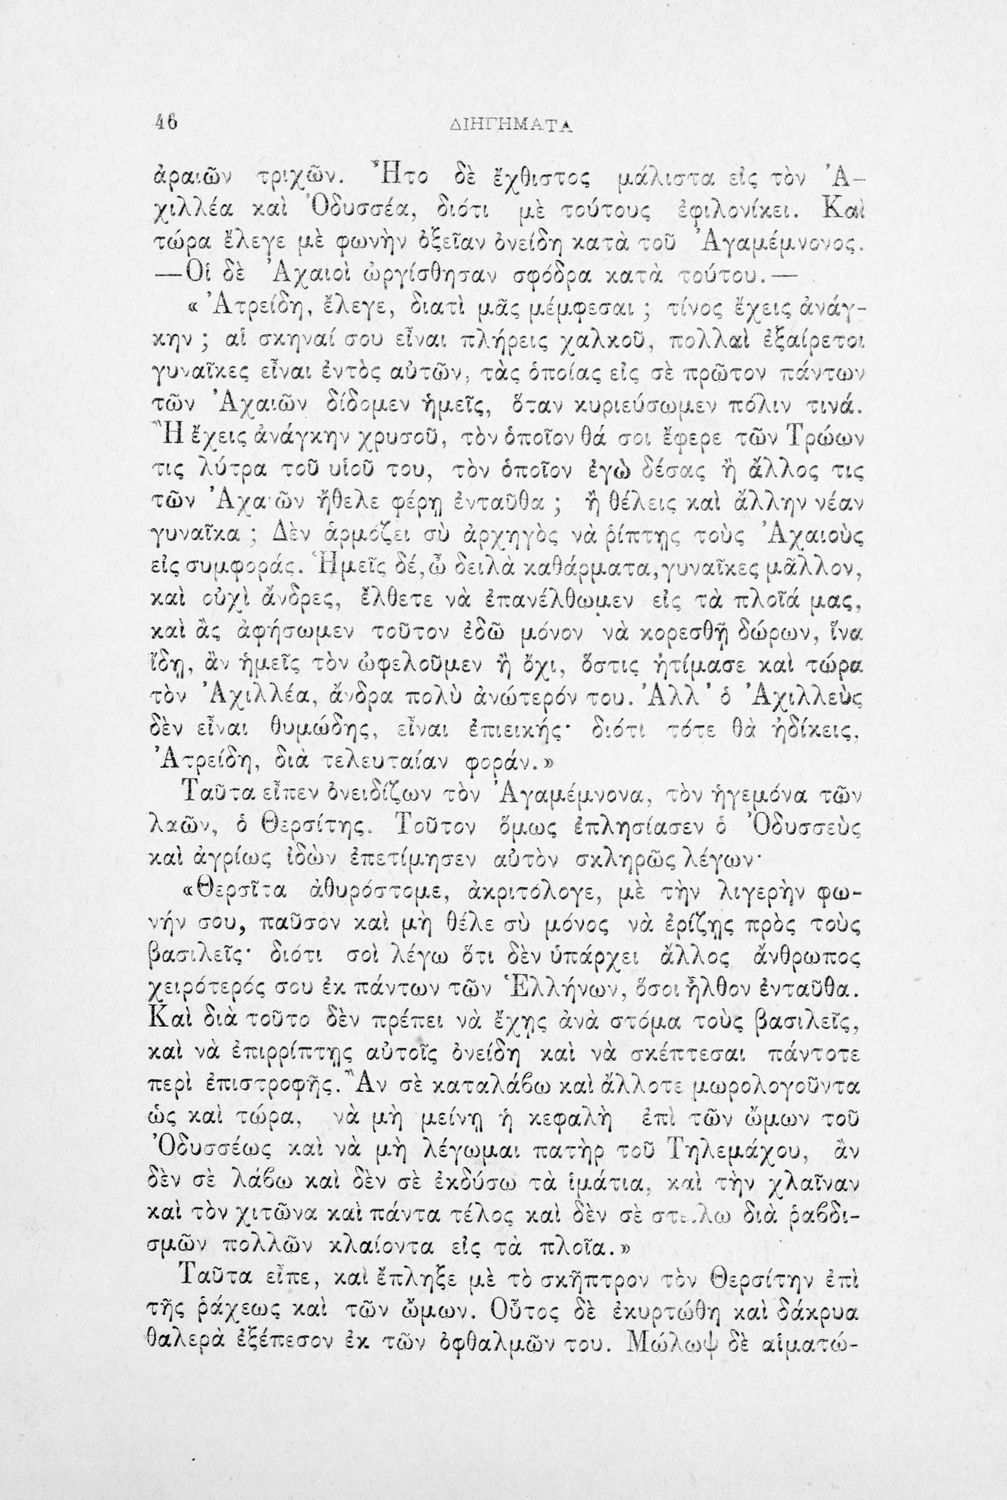 46 ΔΙΗΓΗΜΑΤΑ
ἀραιῶν τριχῶν. Ἦτο δὲ ἔχθιστος μάλιστα εἰς τὸν Ἀ-
χιλλέα καὶ Ὀδυσσέα, διότι μὲ τούτους ἐφιλονίκει. Καὶ
τώρα ἔλεγε μὲ φωνὴν ὀξεῖαν ὀνείδη κατὰ τοῦ Ἀγαμέμνονος.
—Οἱ δὲ Ἀχαιοὶ ὠργίσθησαν σφόδρα κατὰ τούτου.—
«Ἀτρείδη, ἔλεγε, διατὶ μᾶς μέμφεσαι ; τίνος ἔχεις ἀνάγ-
κην ; αἱ σκηναί σου εἶναι πλήρεις χαλκοῦ, πολλαὶ ἐξαίρετοι
γυναῖκες εἶναι ἐντὸς αὐτῶν, τὰς ὁποίας εἰς σὲ πρῶτον πάντων
τῶν Ἀχαιῶν δίδομεν ἡμεῖς, ὅταν κυριεύσωμεν πόλιν τινά.
Ἢ ἔχεις ἀνάγκην χρυσοῦ, τὸν ὁποῖον θά σοι ἔφερε τῶν Τρώων
τις λύτρα τοῦ υἱοῦ του, τὸν ὁποῖον ἐγὼ δέσας ἢ ἄλλος τις
τῶν Ἀχαιῶν ἤθελε φέρῃ ἐνταῦθα ; ἢ θέλεις καὶ ἄλλην νέαν
γυναῖκα ; Δὲν ἁρμόζει σὺ ἀρχηγὸς νὰ ῥίπτῃς τοὺς Ἀχαιοὺς
εἰς συμφοράς. Ἡμεῖς δέ, ὦ δειλὰ καθάρματα, γυναῖκες μᾶλλον,
καὶ οὐχὶ ἄνδρες, ἔλθετε νὰ ἐπανέλθωμεν εἰς τὰ πλοῖά μας,
καὶ ἂς ἀφήσωμεν τοῦτον ἐδῶ μόνον νὰ κορεσθῇ δώρων, ἵνα
ἴδῃ, ἂν ἡμεῖς τὸν ὠφελοῦμεν ἢ ὄχι, ὅστις ἠτίμασε καὶ τώρα
τὸν Ἀχιλλέα, ἄνδρα πολὺ ἀνώτερόν του. Ἀλλ' ὁ Ἀχιλλεὺς
δὲν εἶναι θυμώδης, εἶναι ἐπιεικής· διότι τότε θὰ ἠδίκεις,
Ἀτρείδη, διὰ τελευταίαν φοράν.»
Ταῦτα εἶπεν ὀνειδίζων τὸν Ἀγαμέμνονα, τὸν ἡγεμόνα τῶν
λαῶν, ὁ Θερσίτης. Τοῦτον ὅμως ἐπλησίασεν ὁ Ὀδυσσεὺς
καὶ ἀγρίως ἰδὼν ἐπετίμησεν αὐτὸν σκληρῶς λέγων·
«Θερσῖτα ἀθυρόστομε, ἀκριτόλογε, μὲ τὴν λιγερὴν φω-
νήν σου, παῦσον καὶ μὴ θέλε σὺ μόνος νὰ ἐρίζῃς πρὸς τοὺς
βασιλεῖς· διότι σοὶ λέγω ὅτι δὲν ὑπάρχει ἄλλος ἄνθρωπος
χειρότερός σου ἐκ πάντων τῶν Ἑλλήνων, ὅσοι ἦλθον ἐνταῦθα.
Καὶ διὰ τοῦτο δὲν πρέπει νὰ ἔχῃς ἀνὰ στόμα τοὺς βασιλεῖς,
καὶ νὰ ἐπιρρίπτῃς αὐτοῖς ὀνείδη καὶ νὰ σκέπτεσαι πάντοτε
περὶ ἐπιστροφῆς. Ἂν σὲ καταλάβω καὶ ἄλλοτε μωρολογοῦντα
ὡς καὶ τώρα, νὰ μὴ μείνῃ ἡ κεφαλὴ ἐπὶ τῶν ὤμων τοῦ
Ὀδυσσέως καὶ νὰ μὴ λέγωμαι πατὴρ τοῦ Τηλεμάχου, ἂν
δὲν σὲ λάβω καὶ δὲν σὲ ἐκδύσω τὰ ἱμάτια, καὶ τὴν χλαῖναν
καὶ τὸν χιτῶνα καὶ πάντα τέλος καὶ δὲν σὲ στείλω διὰ ῥαβδι-
σμῶν πολλῶν κλαίοντα εἰς τὰ πλοῖα.»
Ταῦτα εἶπε, καὶ ἔπληξε μὲ τὸ σκῆπτρον τὸν Θερσίτην ἐπὶ
τῆς ῥάχεως καὶ τῶν ὤμων. Οὗτος δὲ ἐκυρτώθη καὶ δάκρυα
θαλερὰ ἐξέπεσον ἐκ τῶν ὀφθαλμῶν του. Μώλωψ δὲ αἱματώ-